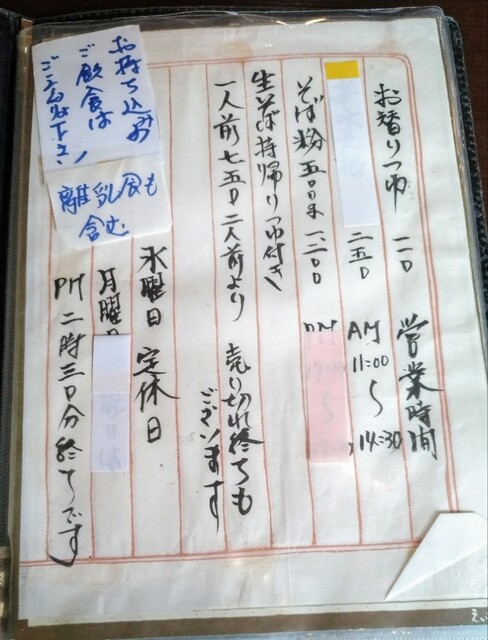 お替りつゆ 一一〇
二五〇
そば粉 五〇〇g 一、二〇〇
生そば持帰りつゆ付き
一人前七五〇 二人前より
営業時間
AM 11:00 〜 14:30
PM
売り切れ終ても
ございます
水曜日 定休日
月曜日
PM 二時三〇分終てです
お持ち込みの
ご飲食は
ご遠慮下さい!
離乳食も
含む